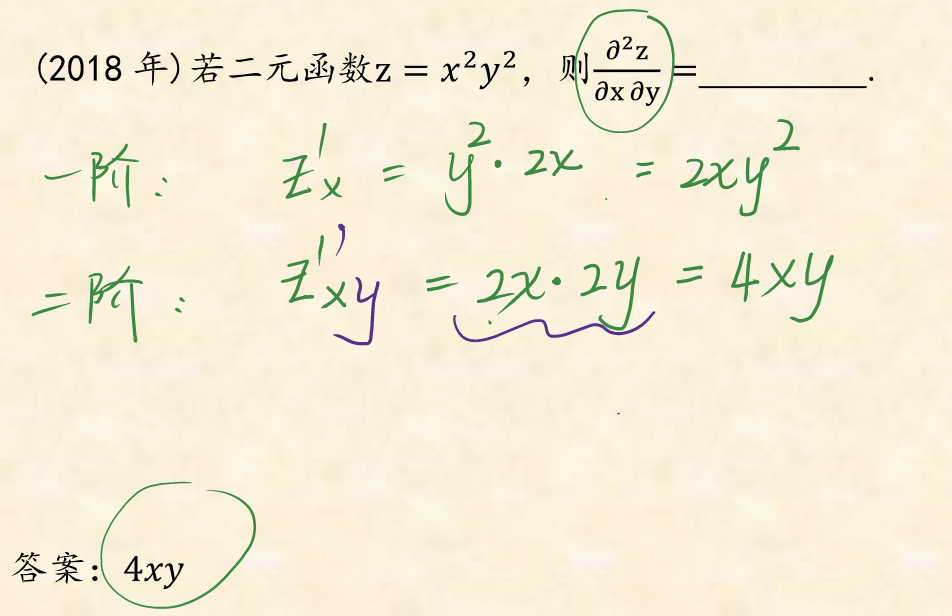 (2018 年) 若二元函数z = x²y²，则∂²z/∂x ∂y=________.
一阶： z'ₓ = y²·2x = 2xy²
二阶： z''ₓy = 2x·2y = 4xy
答案：4xy